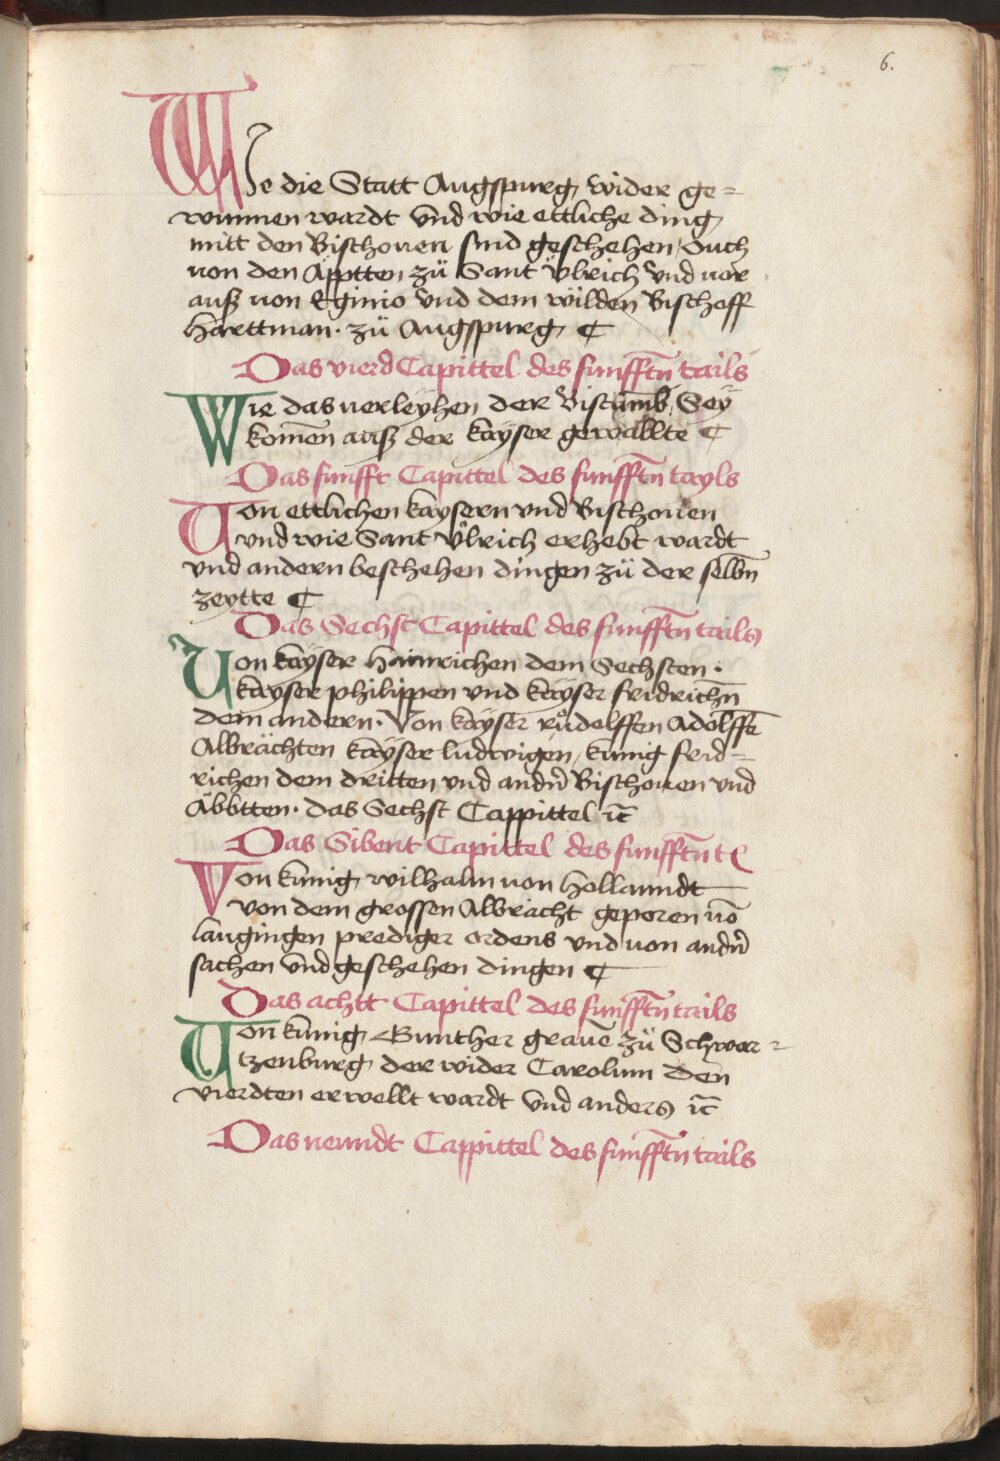 6.
Wie die Statt Augspurg wider ge=
wunnen wardt vnd wie ettliche ding
mitt den Bischouen sind geschehen Ouch
uon den Äpptten zů Sant Ůlrich vnd uor
auß uon Eginio vnd dem wilden Bischoff
Harttman · zů Augspurg ¶
Das vierd Capittel des funfftn̄ tails
Wie das uerleyhen der Bistumb Sey
komen̄ auß der kayser gewallte ¶
Das funfft Capittel des funfftn̄ tayls
Uon ettlichen kaysern vnd Bischouen
vnd wie Sant Ůlrich erhebt wardt
vnd andern beschehen dingen zů der selbn̄
zeytte ¶
Das Sechst Capittel des funfftn̄ tails
Uon kayser Hainrichen dem Sechsten ·
kayser philippen vnd kayser fridrichn̄
dem andern · Von kayser růdolffen Adolffē
Albrächten kayser ludwigen / kunig frid=
richen dem dritten vnd andn̄ Bischouen vnd
Äbbtten · das Sechst Cappittel ꝛc̄
Das Sibent Capittel des funfftn̄ t
Von kunig wilhalm uon Hollanndt
von dem grossen Albrächt geporen uō
laugingen prediger ordens vnd uon andn̄
sachen vnd geschehen dingen ¶
Das achtt Capittel des funfftn̄ tails
Uon kunig Gunther grauē zů Schwar=
tzenburg der wider Carolum den
vierdten erwellt wardt vnd anders ꝛc̄
Das neundt Cappittel des funfftn̄ tails